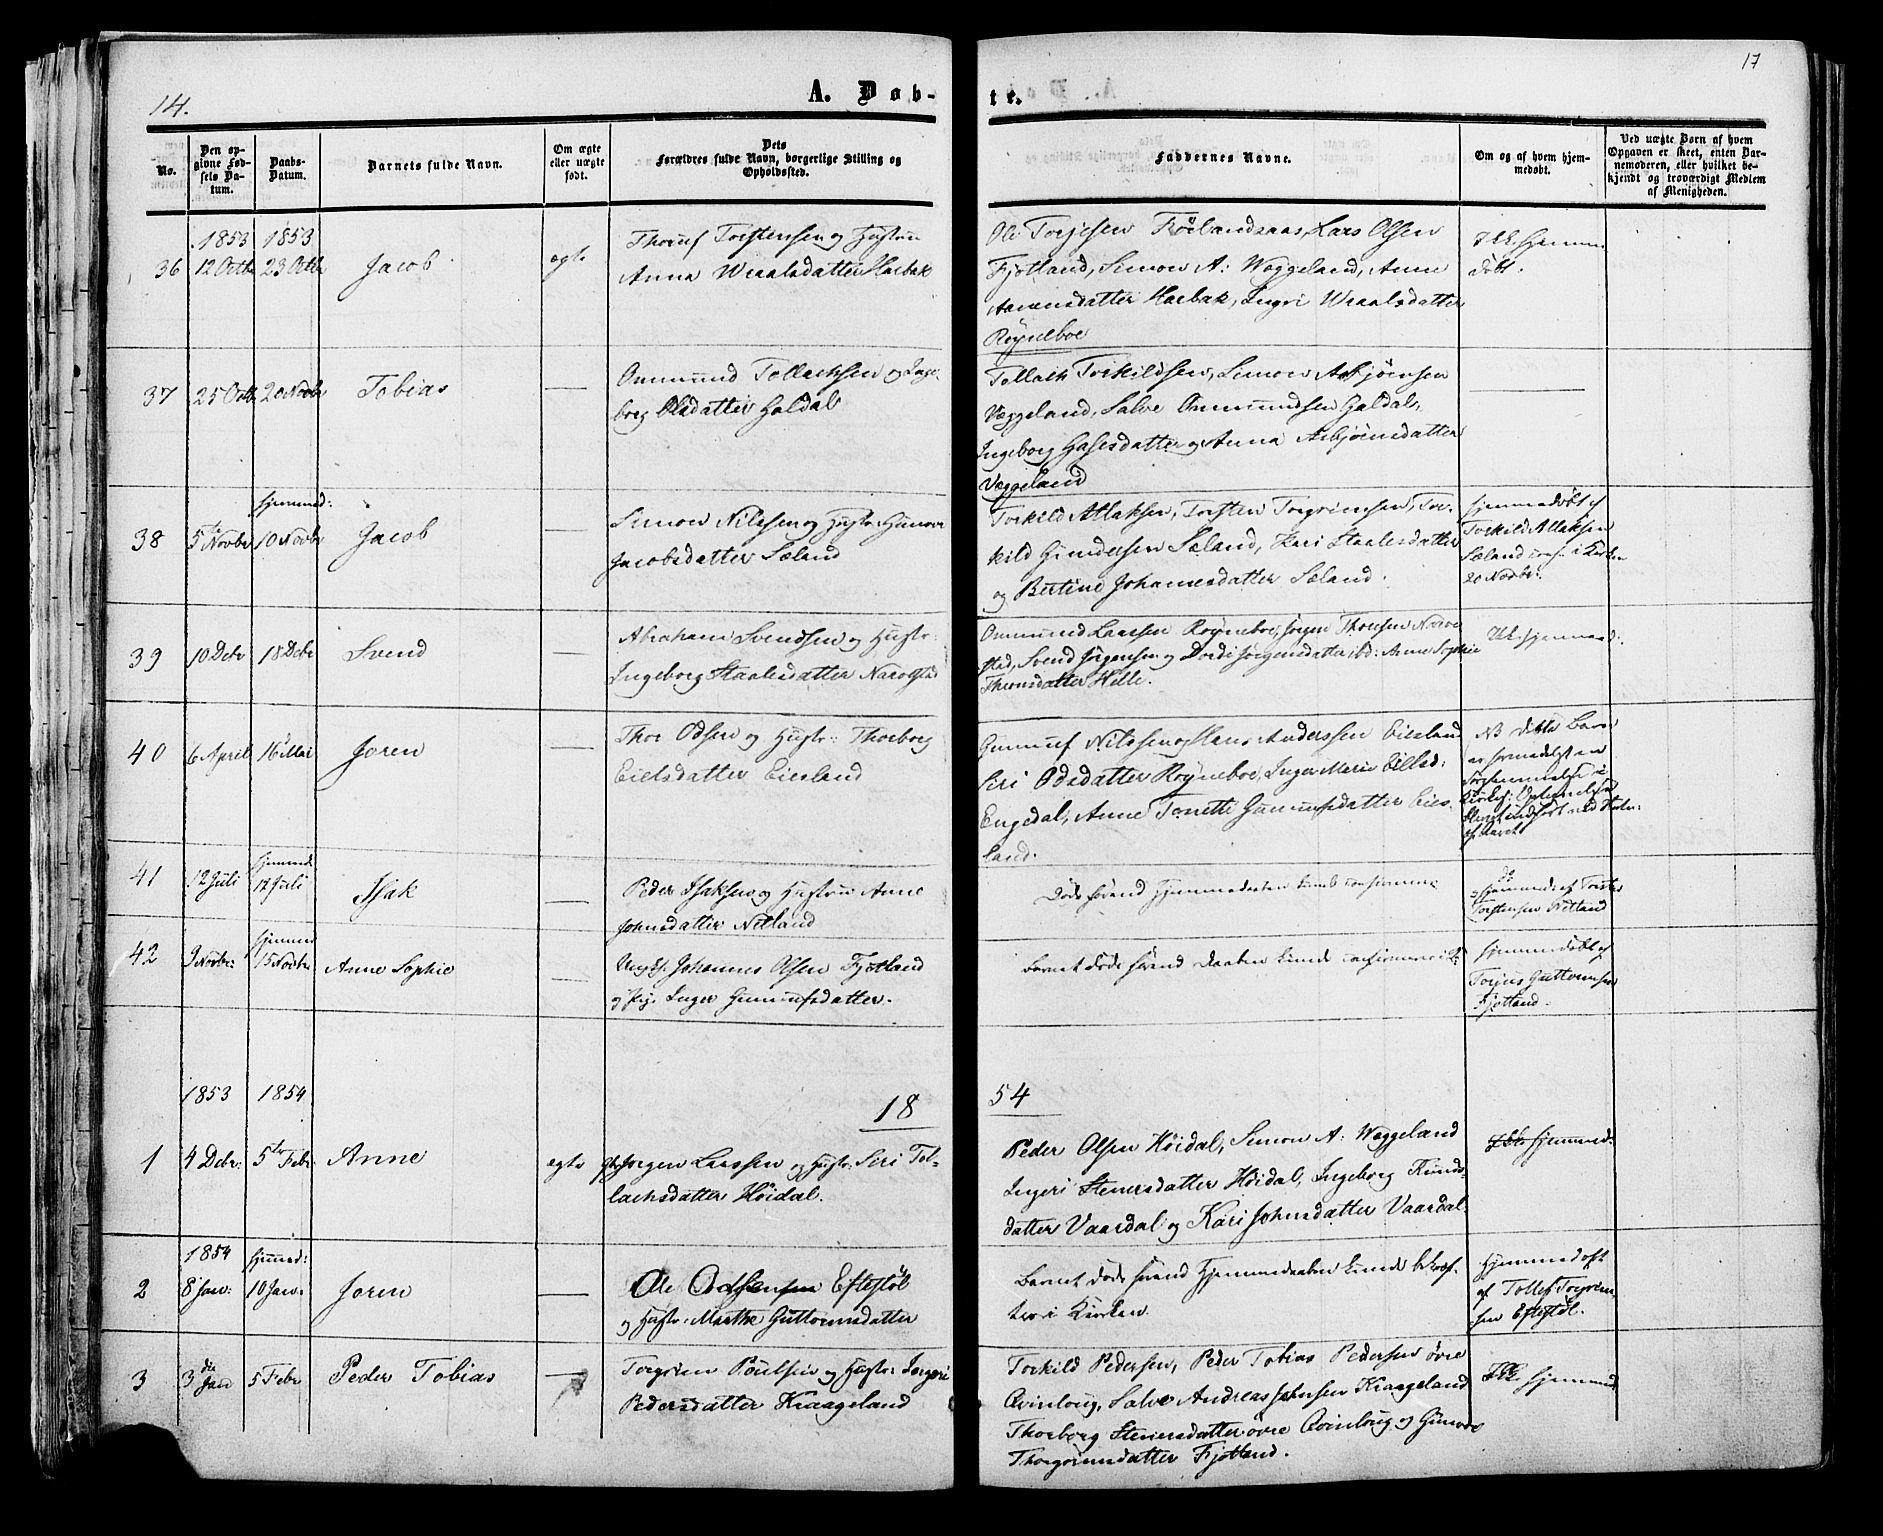 14.
A. Døb-
te.
17
No.
Den op-
givne Fød-
sels Da-
tum.
Daabs-
Datum.
Barnets fulde Navn.
Om ægte
eller uægte
født.
Dets
Forældres fulde Navn, borgerlige Stilling og
Opholdssted.
Faddernes Navne.
Om og af hvem hjem-
medøbt.
Ved uægte Børn af hvem
Opgaven er skeet, enten Bar-
nemoderen, eller hvilket be-
kjendt og troværdigt Medlem
af Menigheden.
1853 1853
36 12 Octb 23 Octb Jacob ægte
Thoruf Torstensen og Hustru
Anna Wraalsdatter Harbak
Ole Torjesen Frøelandsaas, Lars Olsen
Fjotland, Simon A: Wæggeland, Anne
Aanensdatter Harbak, Ingri Wraalsdatter
Røyneboe
Ikke hjemme
døbt.
37 25 Octb 20 Novbr Tobias —
Ommund Tollachsen og Inge-
borg Olsdatter Galdal
Tollach Torkildsen, Simon Asbjørnsen
Væggeland, Salve Ommundsen Galdal,
Ingeborg Gasesdatter og Anna Asbjørnsdatter
Væggeland
—
hjemmed:
38 5te Novbr 10 Novbr Jacob —
Simon Nilssen og Hustr: Gunvor
Jacobsdatter Sæland
Torkild Atlaksen, Torsten Torgrimsen, Tor-
kild Gundersen Sæland, Kari Staalesdatter
og Bertine Johannesdatter Sæland.
hjemmedøbt af
Torkild Atlaksen
Sæland conf. i Kirken
20 Novbr:
39 10 Debr 18 Debr Svend —
Abraham Svendsen og Hustr:
Ingeborg Staalesdatter Narvestad
Ommund Larssen Røyneboe, Jørgen Thorsen Narve-
stad, Svend Jørgensen og Dordi Jørgensdatter ibd: Anne Sophie
Thorsdatter Helle.
Ikke hjemmed:
40 6 April 16 Mai Joren —
Thor Odsen og Hustr: Thorborg
Eielsdatter Eiesland
Gunnuf Nilssen og Hans Anderssen Eiesland
Siri Odsdatter Røyneboe, Inger Marie Eielsd:
Engedal, Anne Tonette Gunnufsdatter Eies-
land.
NB dette Barn
er formedelst en
Forsømmelse i
hjemmed
41 12 Juli 12 Juli Isak —
Peder Isaksen og Hustru Anne
Johnsdatter Netland
Døde førend Hjemmedaaben kunde confirmeres
hjemmed: af Torsten
Torstensen Netland
hjemmed
42 9 Novbr: 15 Novbr Anne Sophie —
Ungk. Johannes Olsen Fjotland
og Pig. Inger Gunnufsdatter.
Barnet døde førend Daaben kunde confirmeres i K:
hjemmedøbt af
Torjus Guttormsen
Fjotland.
1853 1854
18
54
1 4 Debr: 5te Febr. Anne ægte
Jørgen Larssen og Hustr: Siri Tol-
lachsdatter Høidal.
Peder Olsen Høidal, Simon A: Wæggeland
Ingeri Stenersdatter Høidal, Ingeborg Knuds-
datter Vaardal og Kari Johnsdatter Vaardal
Ikke hjemmed:
1854 hjemmed:
2 8 Jan: 10 Jan: Joren —
Ole Eftestøl
og Hustr: Marthe Guttormsdatter
Barnet døde førend Hjemmedaaben kunde bekræf-
tes i Kirken
Hjemmedøbt
af Tollef Torgrim-
sen Eftestøl.
3 3die Jan 5 Febr Peder Tobias —
Torgrim Poulsen og Hustr: Ingeri
Pedersdatter Kraageland
Torkild Pedersen, Peder Tobias Pedersen øvre
Qvinloug, Salve Andreas Johnsen Kraageland
Thorborg Stenersdatter øvre Qvinloug og Gunvor
Thorgrimsdatter Fjotland.
Ikke hjemmed